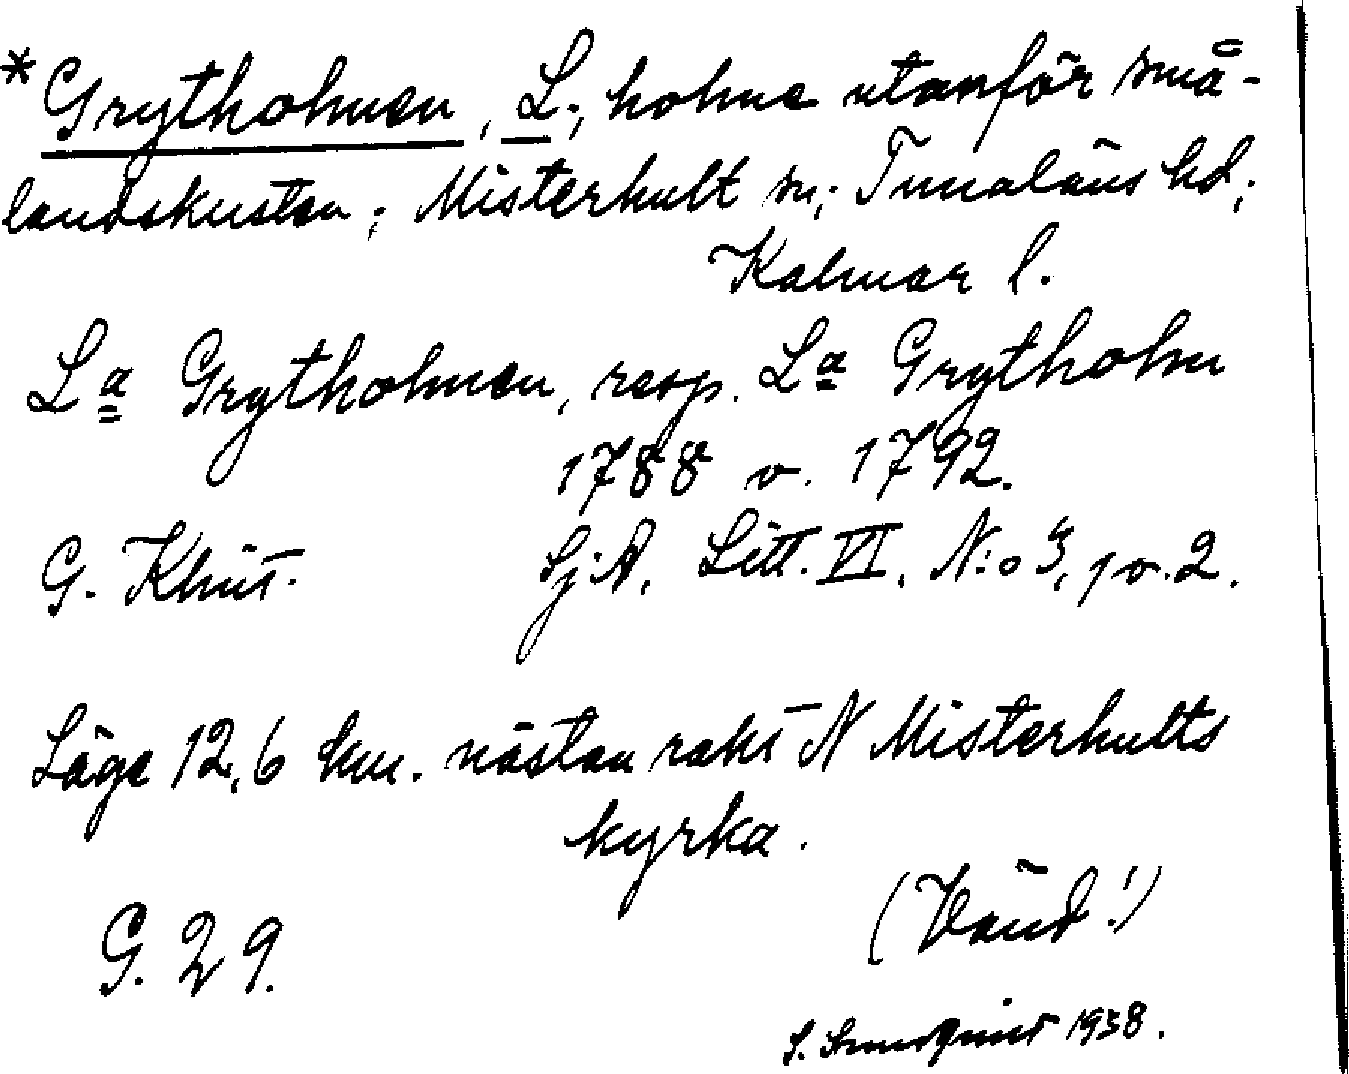 *Grytholmen, L.; holme utanför små-
landskusten; Misterhult sn; Tunaläns hd;
Kalmar l.
La Grytholmen, resp. La Grytholm
1788 o. 1792.
G. Klint. Sj:A, Litt. VI, N:o 3, 1 o. 2.
Läge 12,6 km. nästan rakt N Misterhults
kyrka.
(Vänd!)
G. 29.
S. 1938.